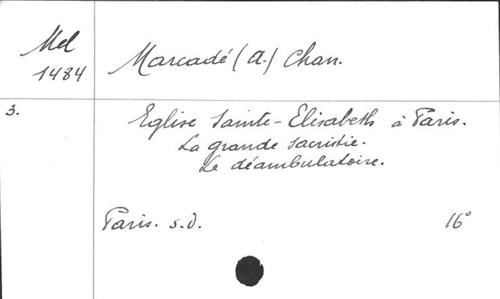 Mel
1484
Marcadé (A.) Chan.
3.
Eglise Sainte-Elisabeth à Paris.
La grande sacristie.
Le déambulatoire.
Paris. s.d.
16°